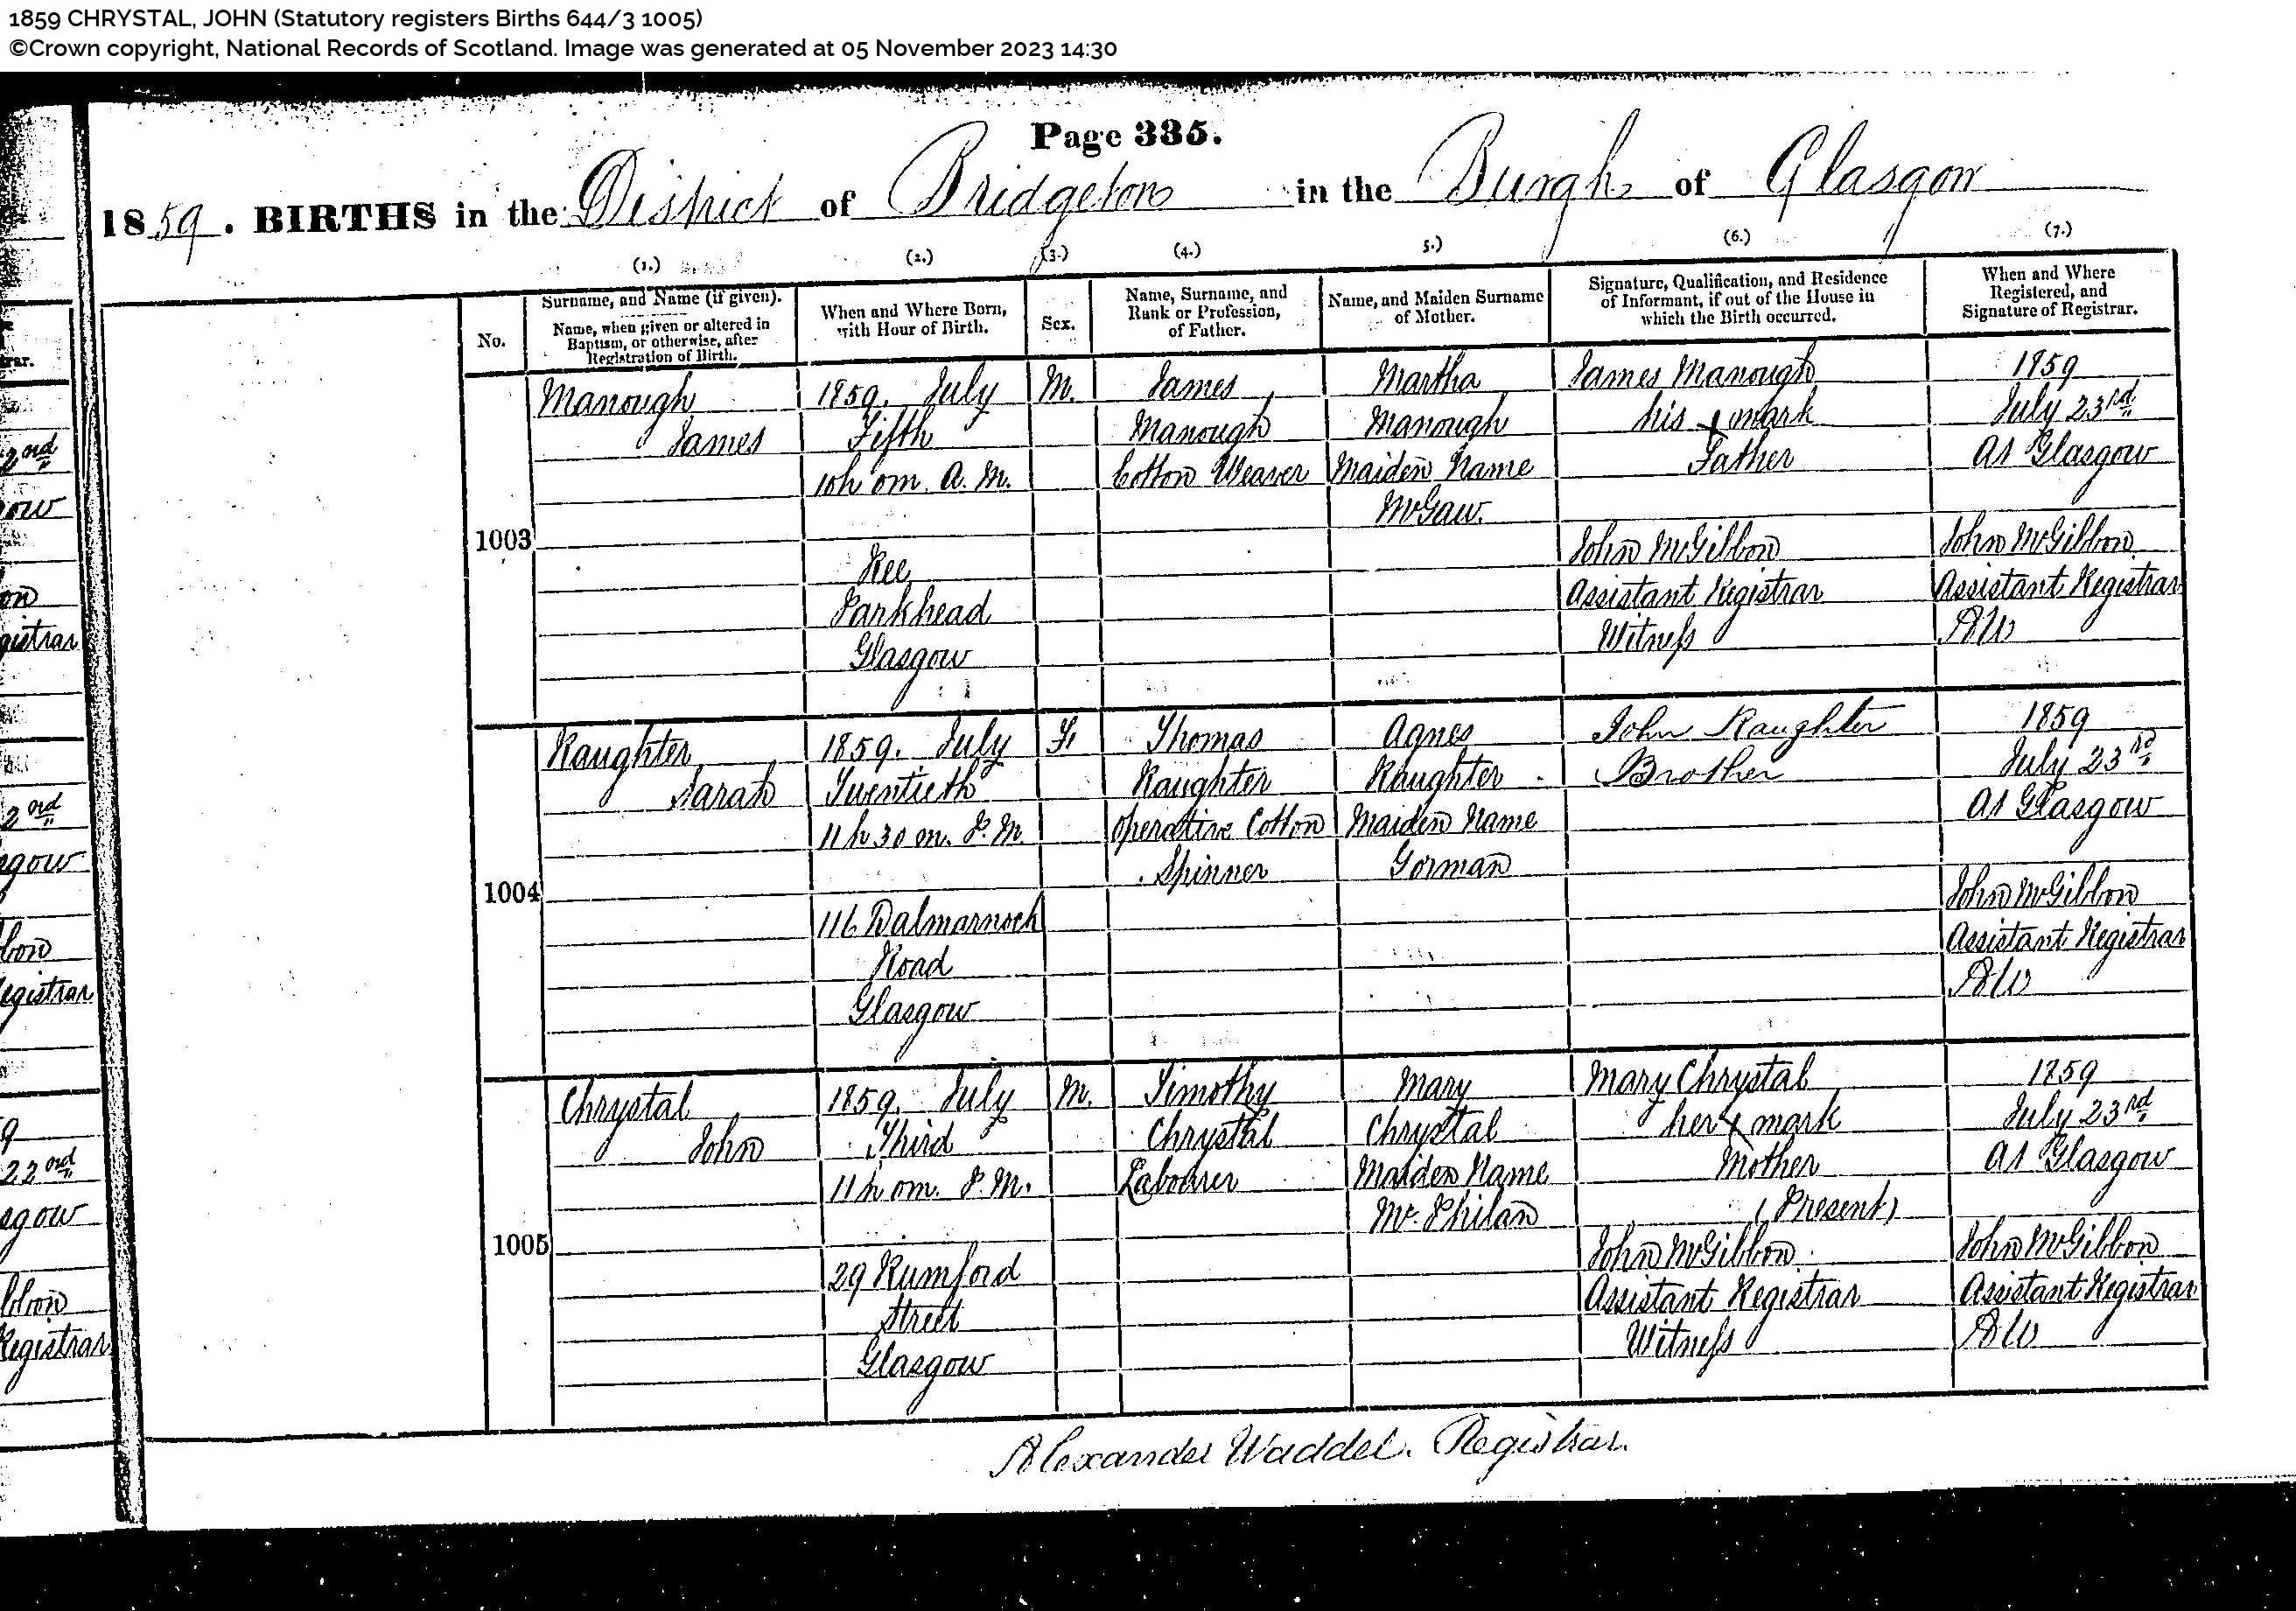 1859 CHRYSTAL, JOHN (Statutory registers Births 644/3 1005)
©Crown copyright, National Records of Scotland. Image was generated at 05 November 2023 14:30
Page 335.
1859. BIRTHS in the District of Bridgeton in the Burgh of Glasgow
(1.) (2.) (3.) (4.) 5.) (6.) (7.)
No.
Surname, and Name (if given).
Name, when given or altered in
Baptism, or otherwise, after
Registration of Birth.
When and Where Born,
with Hour of Birth.
Sex.
Name, Surname, and
Rank or Profession,
of Father.
Name, and Maiden Surname
of Mother.
Signature, Qualification, and Residence
of Informant, if out of the House in
which the Birth occurred.
When and Where
Registered, and
Signature of Registrar.
1003
Manough
James
1859. July
Fifth
10h 0m. A. M.
Parkhead
Glasgow
M.
James
Manough
Cotton Weaver
Martha
Manough
Maiden Name
McGaw.
James Manough
his x mark
Father
John McGibbon
Assistant Registrar
Witness
1859
July 23rd
At Glasgow
John McGibbon
Assistant Registrar
AW
1004
Raughter
Sarah
1859. July
Twentieth
11h 30m. P. M.
116 Dalmarnock
Road
Glasgow
F.
Thomas
Raughter
Operative Cotton
Spinner
Agnes
Raughter
Maiden Name
Gorman
John Raughter
Brother
1859
July 23rd
At Glasgow
John McGibbon
Assistant Registrar
AW
1005
Chrystal
John
1859. July
Third
11h 0m. P. M.
29 Rumford
Street
Glasgow
M.
Timothy
Chrystal
Labourer
Mary
Chrystal
Maiden Name
Mc.Philan
Mary Chrystal
her x mark
Mother
(Present)
John McGibbon
Assistant Registrar
Witness
1859
July 23rd
At Glasgow
John McGibbon
Assistant Registrar
AW
Alexander Waddel. Registrar.